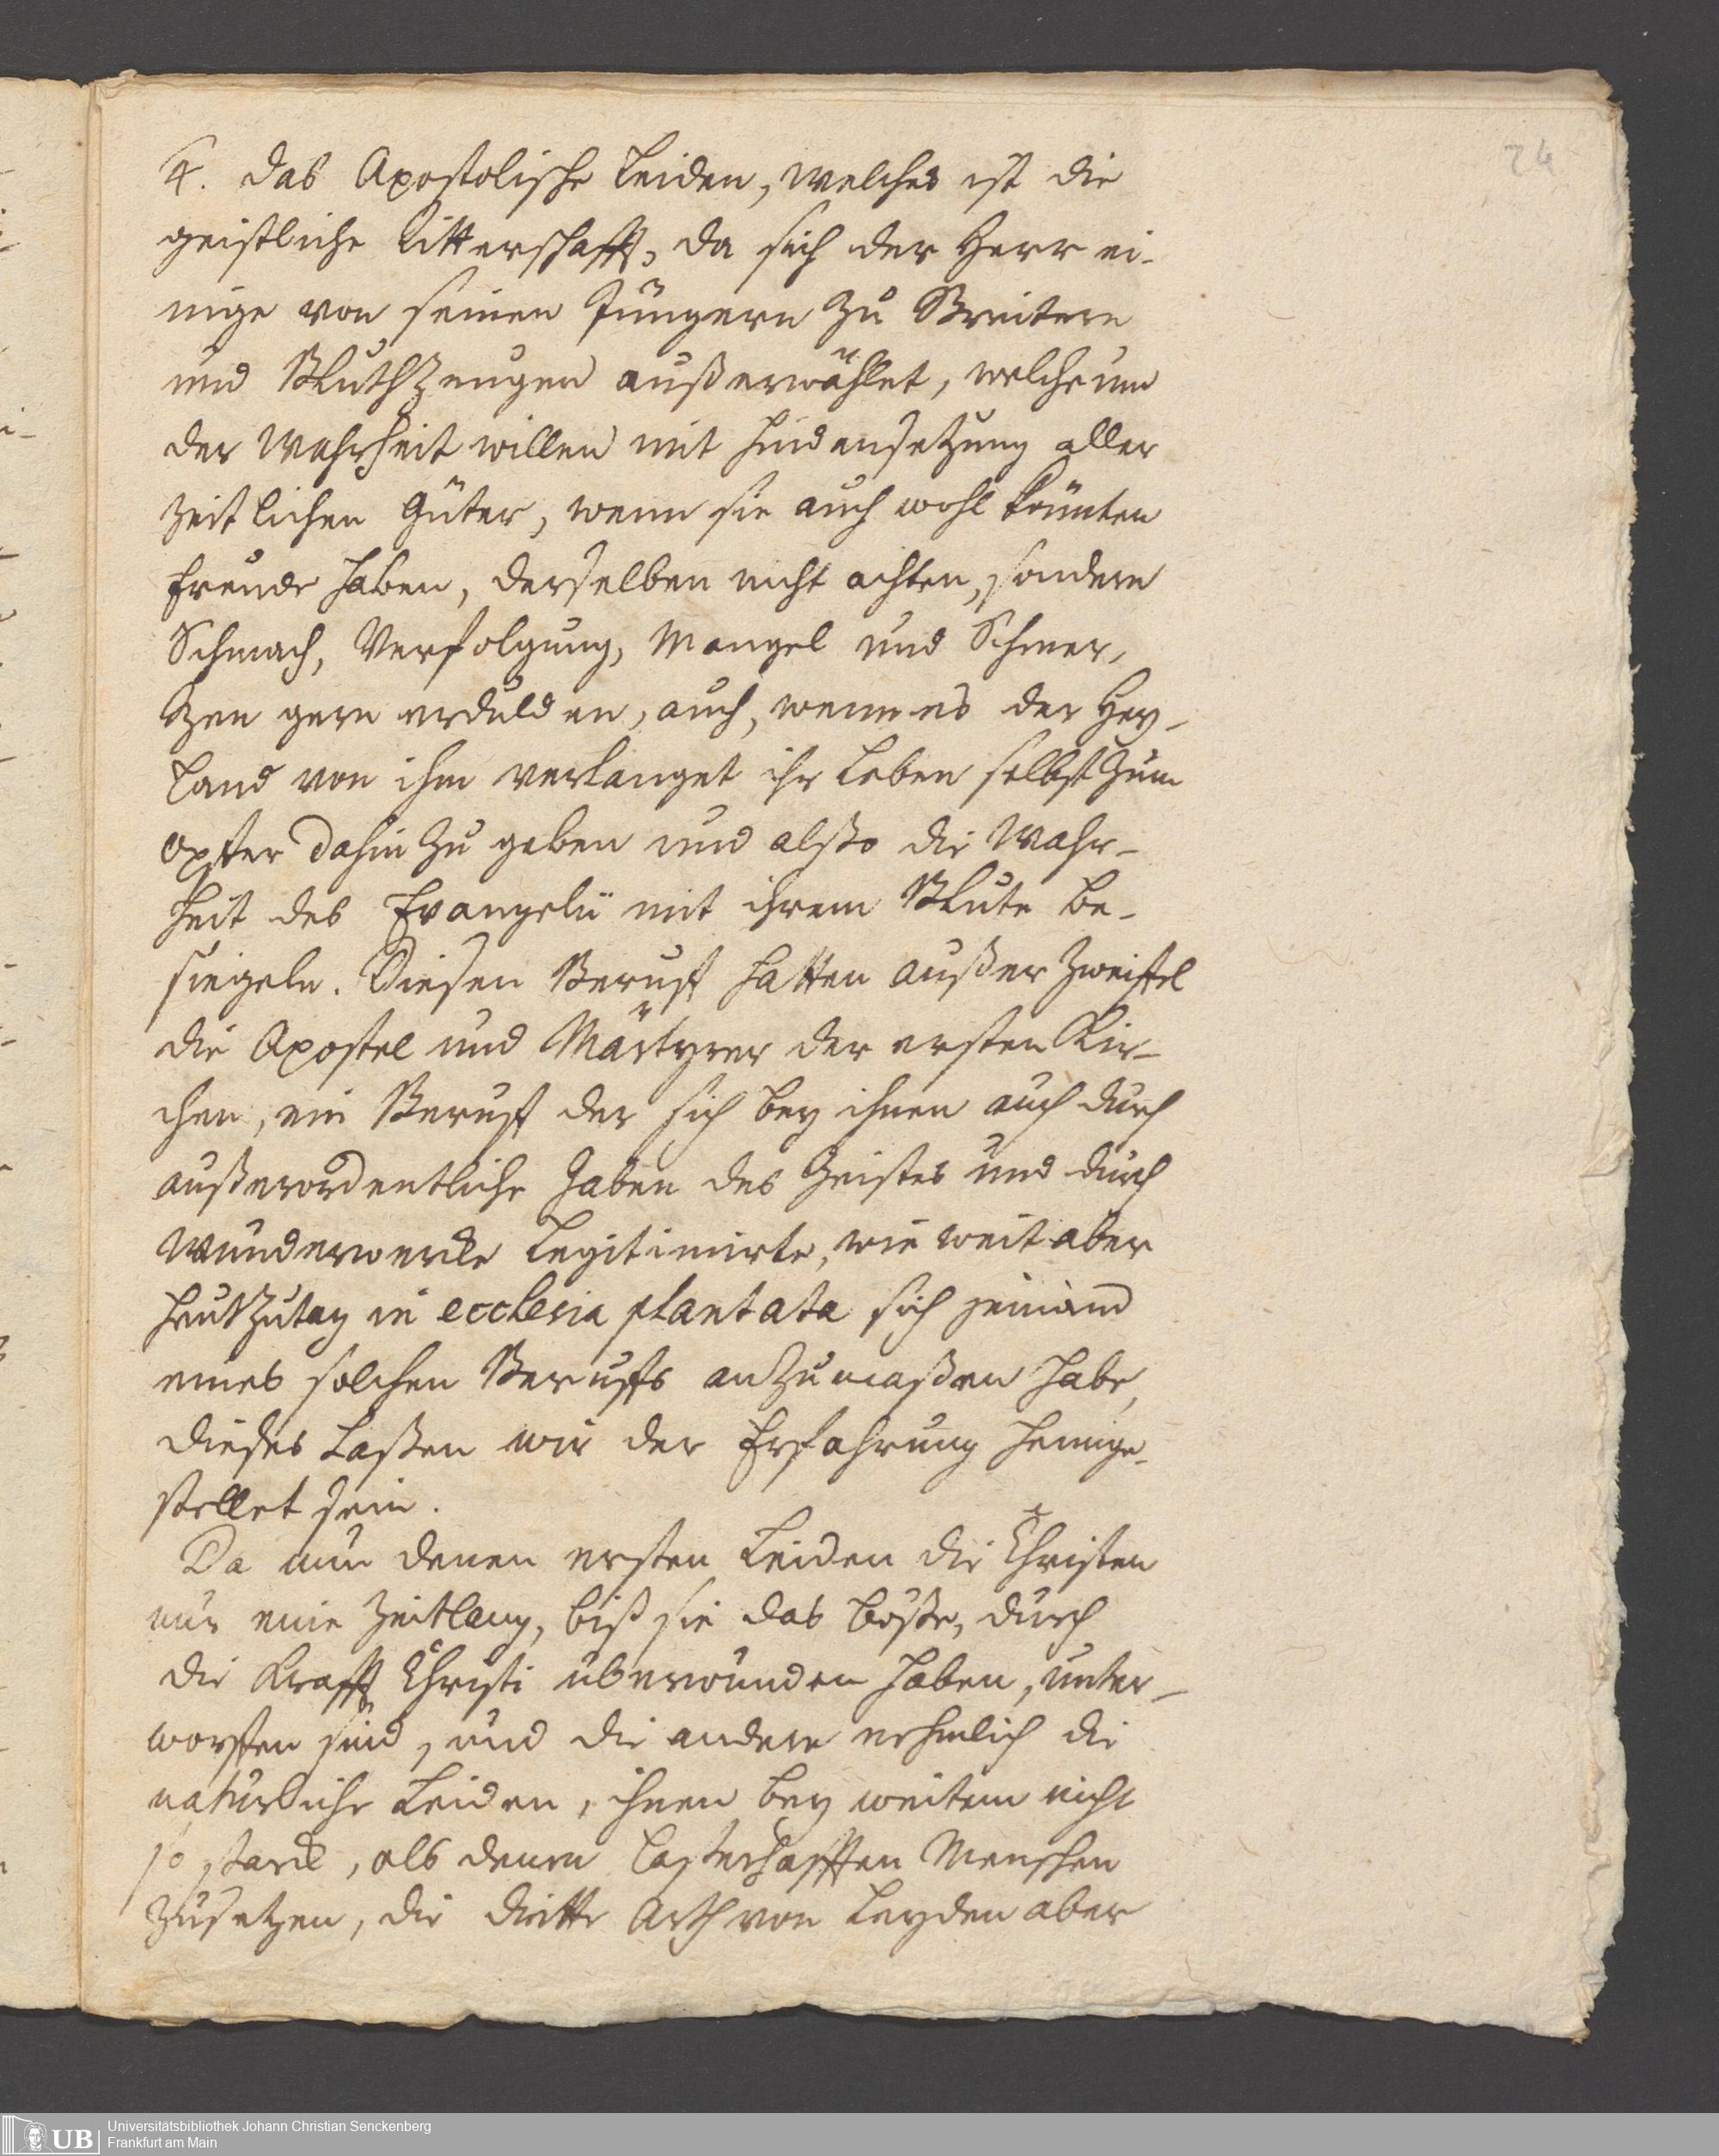 24
4. das Apostolische Leiden, welches ist die
geistliche Ritterschafft, da sich der Herr ei-
nige von seinen Jüngern zu Streitern
und Bluthzeugen außerwählet, welche um
der Wahrheit willen mit Hindensetzung aller
zeitlichen Güter, wenn sie auch wohl könnten
Freude haben, derselben nicht achten, sondern
Schmach, Verfolgung, Mangel und Schmer-
tzen gern erdulden, auch, wenn es der Hey-
land von ihm verlanget ihr Leben selbst zum
Opffer dahin zu geben und alßo die Wahr-
heit des Evangelii mit ihrem Blute be-
siegeln. Diesen Beruff hatten außer Zweiffel
die Apostel und Märtyrer der ersten Kir-
chen, ein Beruff der sich bey ihnen auch durch
außerordentliche Gaben des Geistes und durch
Wunderwercke Legitimirte, wie weit aber
heut zu tag in ecclesia plantata sich jemand
eines solchen Beruffs anzumaßen habe,
dieses Laßen wir der Erfahrung heimge-
stellet sein.
Da nun denen ersten Leiden die Christen
nur eine Zeitlang, biß sie das böße, durch
die Krafft Christi überwunden haben, unter-
worffen sind, und die andere nehmlich die
natürliche Leiden, ihnen bey weitem nicht
so starck, als denen Lasterhafften Menschen
zusetzen, die dritte Arth von Leyden aber
UB
Universitätsbibliothek Johann Christian Senckenberg
Frankfurt am Main